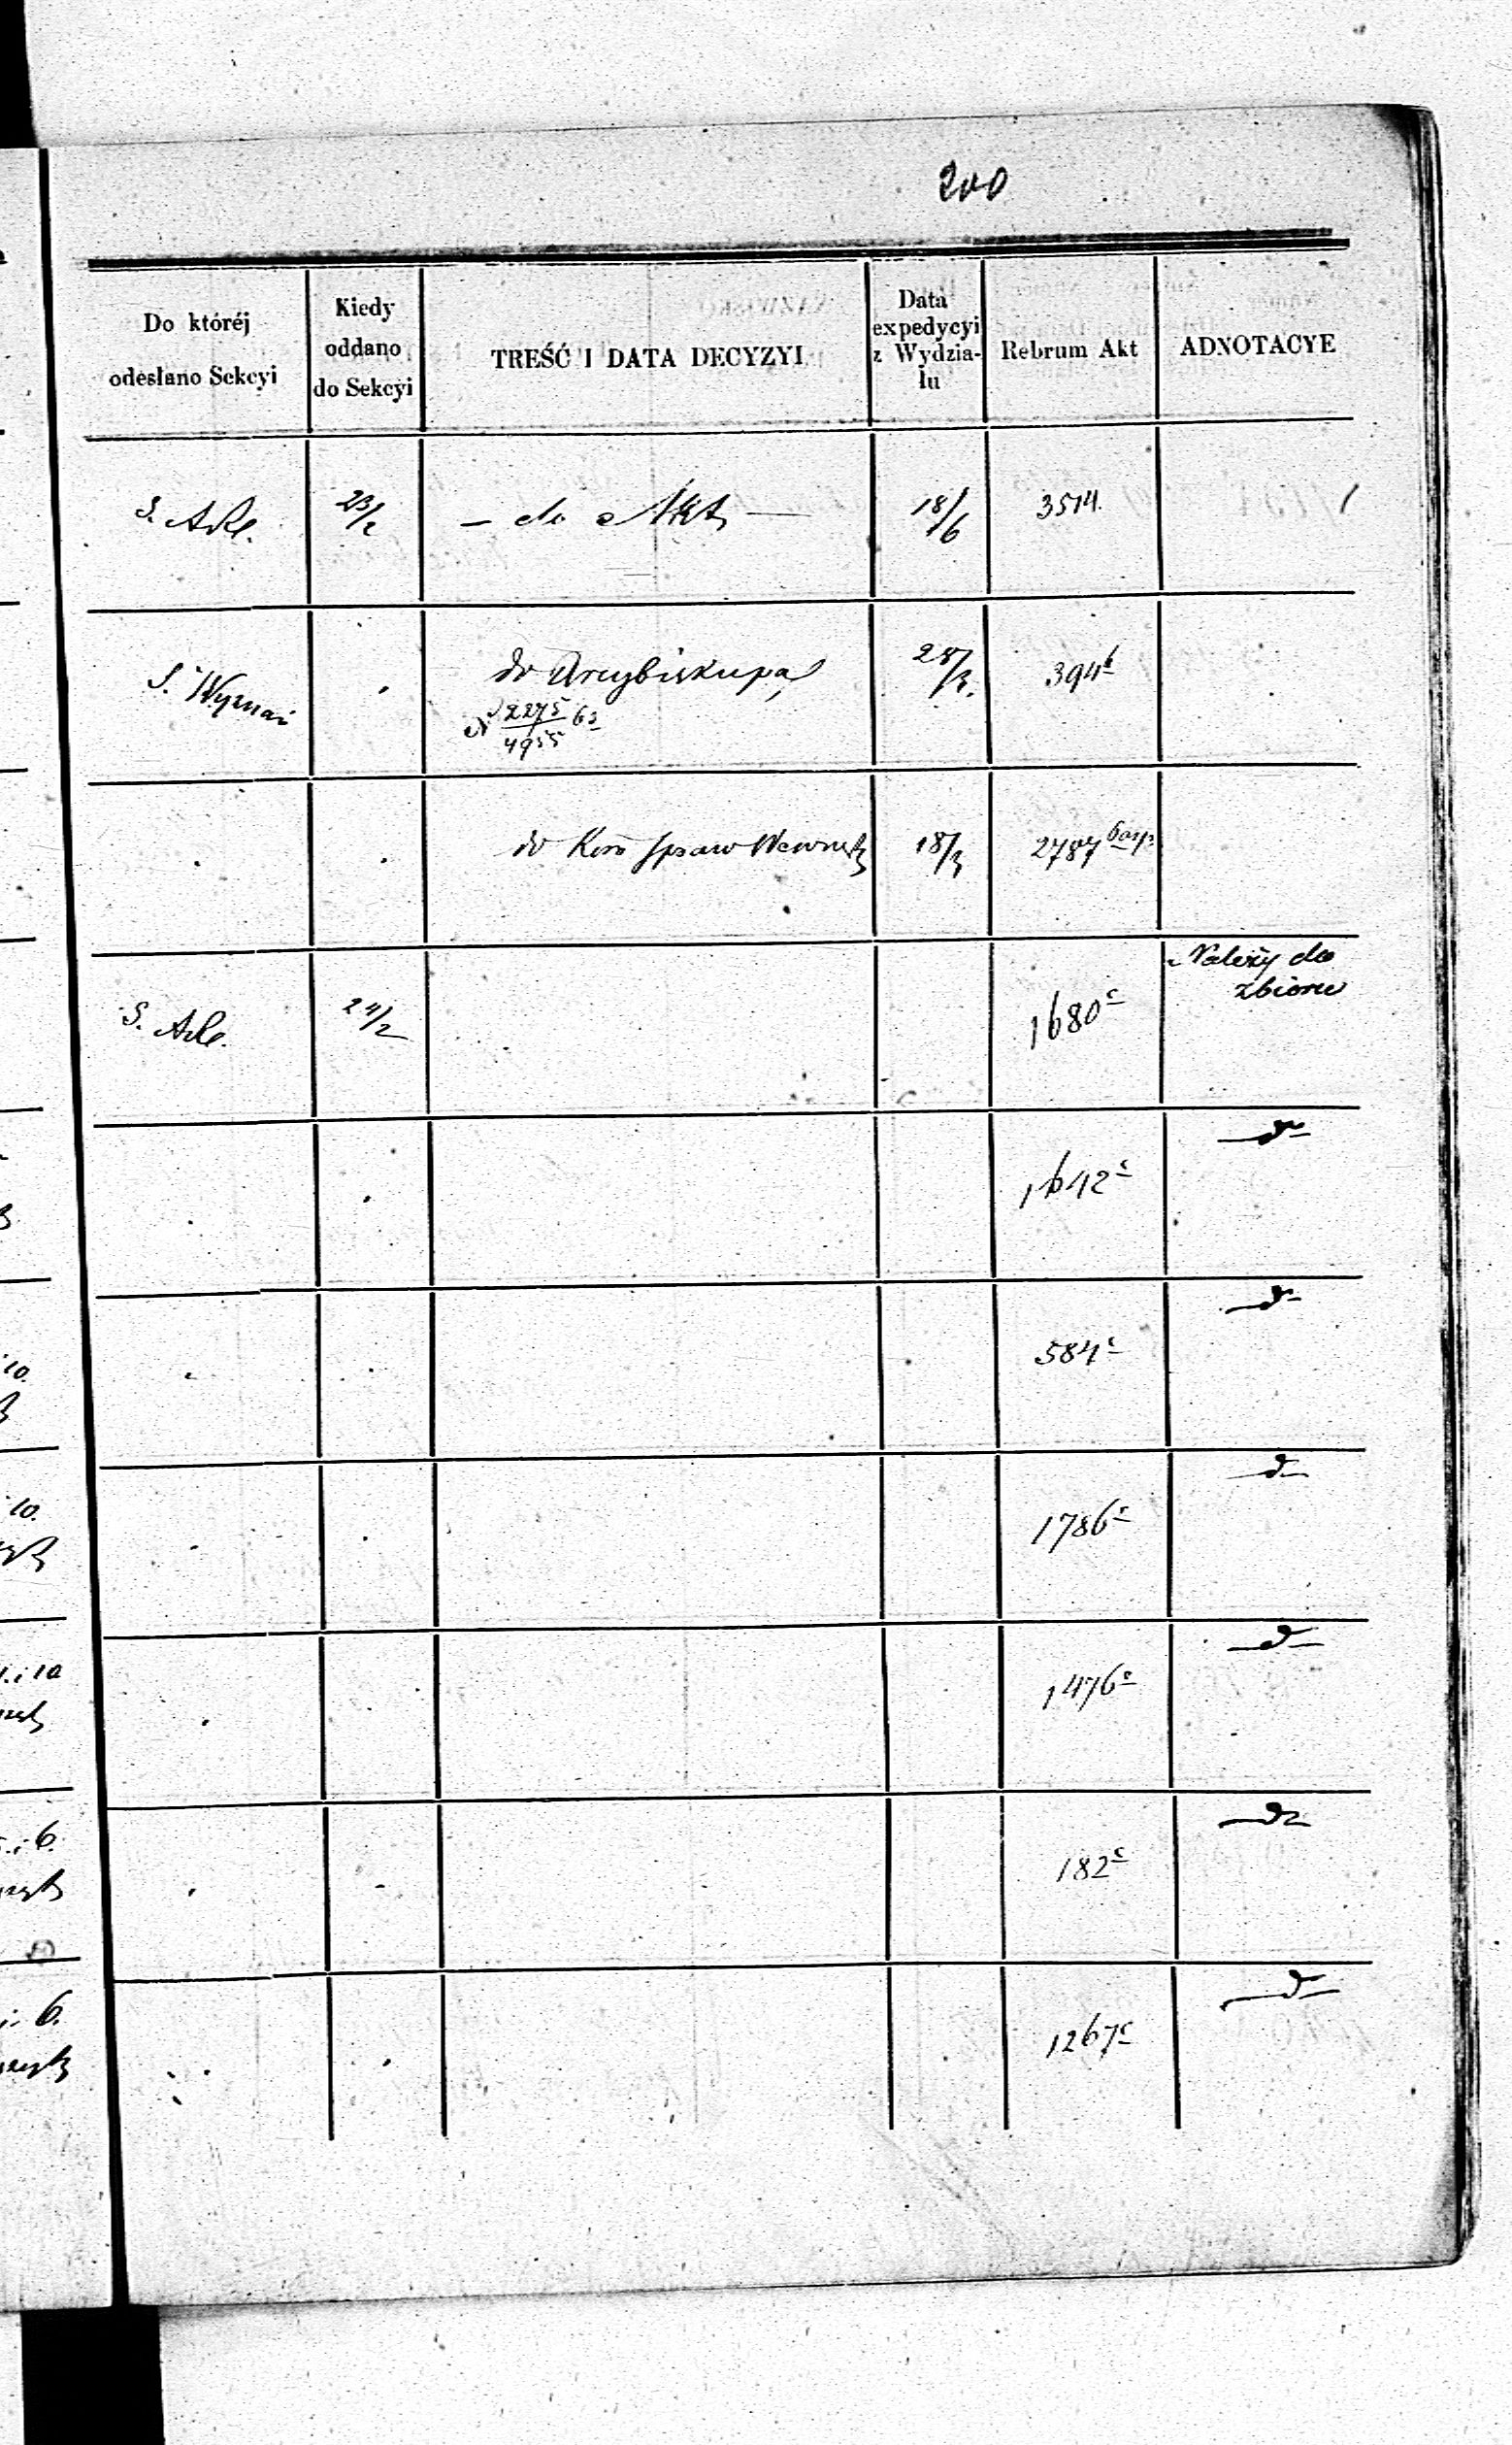 200
Do któréj
odesłano Sekcyi
Kiedy
oddano
do Sekcyi
TREŚĆ I DATA DECYZYI
Data
expedycyi
z Wydzia-
łu
Rebrum Akt
ADNOTACYE
23/2
do Akt
18/6
3514.
S. Wyznań
do Arcybiskupa
N 2275/4955 63
28/3.
394
do Kom Spraw Wewnętz
18/3
2787
S.
24/2
1680 c
Należy do
zbioru
1642 c
do
584 c
d
1786 c
d
1476 c
d
182 c
do
1267 c
d